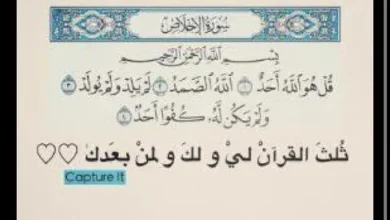 سُورَةُ الإِخْلَاصِ
بِسْمِ اللَّهِ الرَّحْمَٰنِ الرَّحِيمِ
قُلْ هُوَ اللَّهُ أَحَدٌ ﴿١﴾ اللَّهُ الصَّمَدُ ﴿٢﴾ لَمْ يَلِدْ وَلَمْ يُولَدْ ﴿٣﴾
وَلَمْ يَكُن لَّهُ كُفُوًا أَحَدٌ ﴿٤﴾
ثُلثَ القرآنْ ليْ و لكَ و لمنْ بعدكَ ♡♡
Capture It